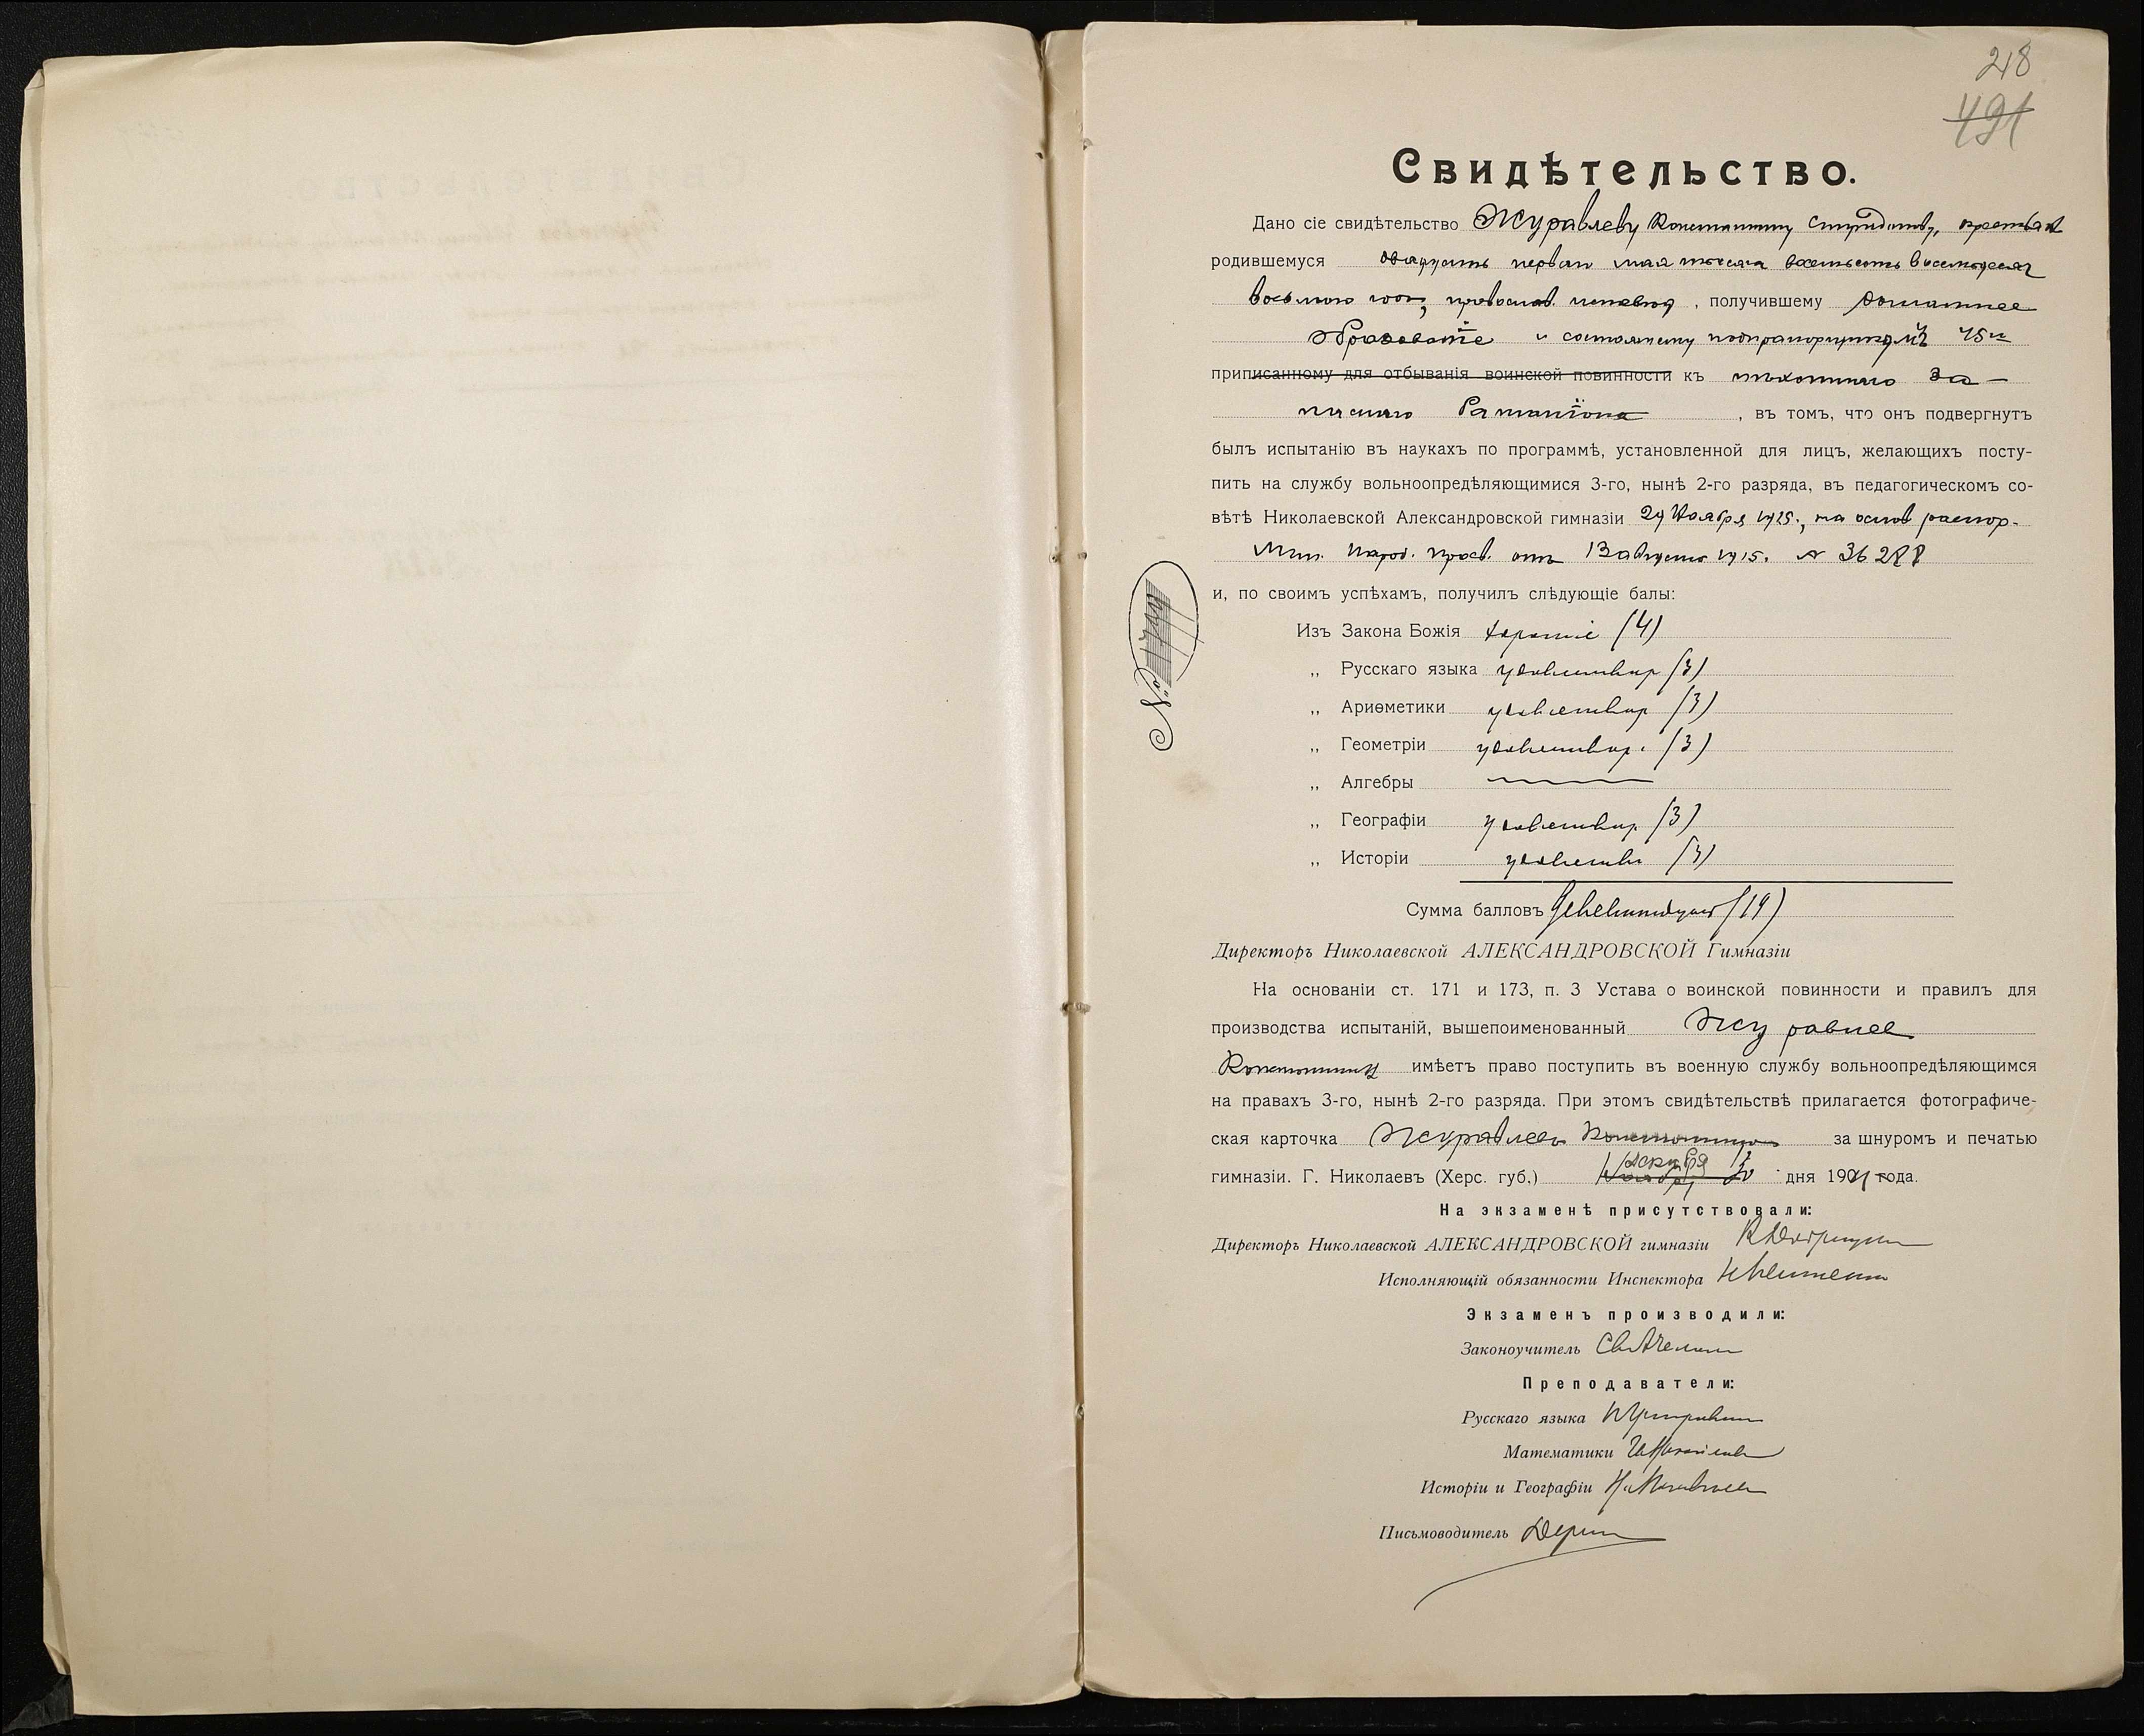 218
491
Свидѣтельство.
Дано сіе свидѣтельство Журавлеву Константину Спиридонову,
родившемуся двадцать перваго мая тысяча восемьсотъ восемьдесят
восьмого года, православ. исповѣд, получившему домашнее
образованіе и состоящему подпрапорщикомъ 45го
приписанному для отбыванія воинской повинности къ пѣхотнаго За-
паснаго Баталіона, въ томъ, что онъ подвергнутъ
былъ испытанію въ наукахъ по программѣ, установленной для лицъ, желающихъ посту-
пить на службу вольноопредѣляющимися 3-го, нынѣ 2-го разряда, въ педагогическомъ со-
вѣтѣ Николаевской Александровской гимназіи 29 Ноября 1915., на основ распор.
Мин. Народ. просв. отъ 13 августа 1915. № 36288
и, по своимъ успѣхамъ, получилъ слѣдующіе балы:
Изъ Закона Божія хорошіе (4)
„ Русскаго языка удовлетвор (3)
„ Ариѳметики удовлетвор (3)
„ Геометріи удовлетвор. (3)
„ Алгебры
„ Географіи удовлетвор. (3)
„ Исторіи удовлетв (3)
№
Сумма балловъ девятнадцать (19)
Директоръ Николаевской АЛЕКСАНДРОВСКОЙ Гимназіи
На основаніи ст. 171 и 173, п. 3 Устава о воинской повинности и правилъ для
производства испытаній, вышепоименованный Журавлев
Константин имѣетъ право поступить въ военную службу вольноопредѣляющимся
на правахъ 3-го, нынѣ 2-го разряда. При этомъ свидѣтельствѣ прилагается фотографиче-
ская карточка Журавлева Константина за шнуромъ и печатью
гимназіи. Г. Николаевъ (Херс. губ.) декабря дня 190 года.
На экзаменѣ присутствовали:
Директоръ Николаевской АЛЕКСАНДРОВСКОЙ гимназіи
Исполняющій обязанности Инспектора
Экзаменъ производили:
Законоучитель
Преподаватели:
Русскаго языка
Математики
Исторіи и Географіи
Письмоводитель